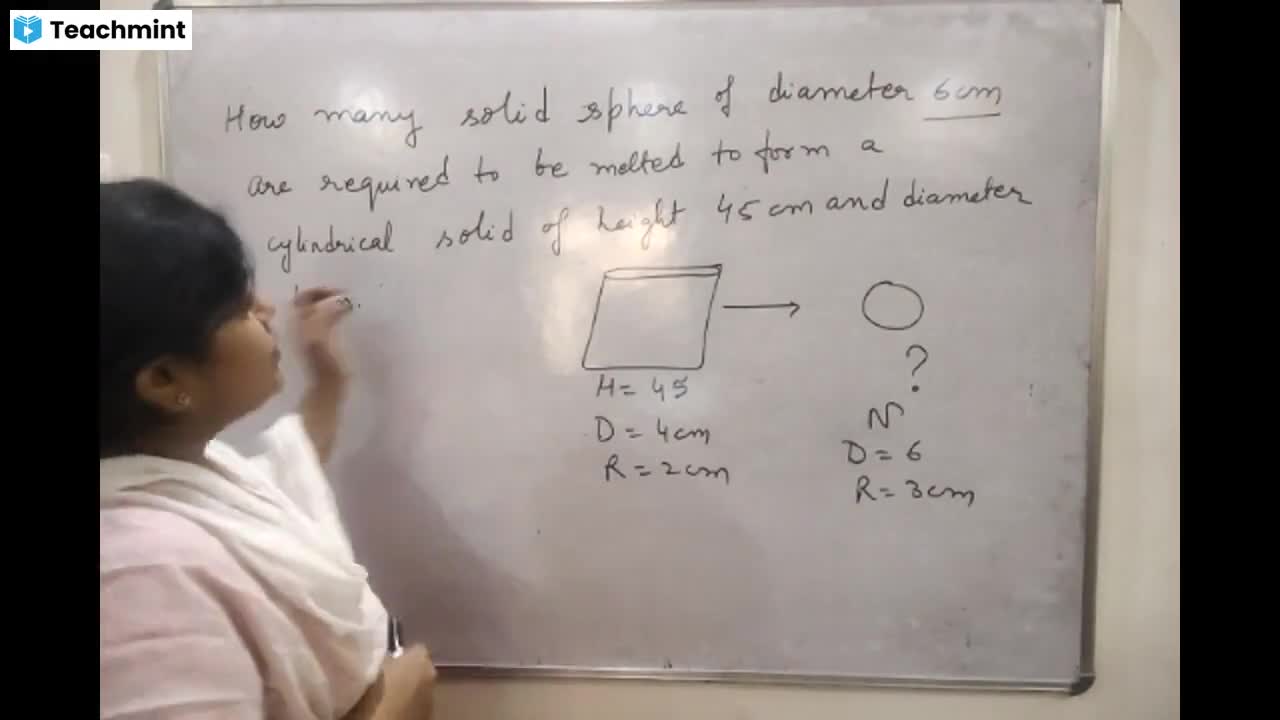 Teachmint
How many solid sphere of diameter 6cm
are required to be melted to form a
cylindrical solid of height 45 cm and diameter
H = 45
D = 4cm
R = 2cm
?
N
D = 6
R = 3cm